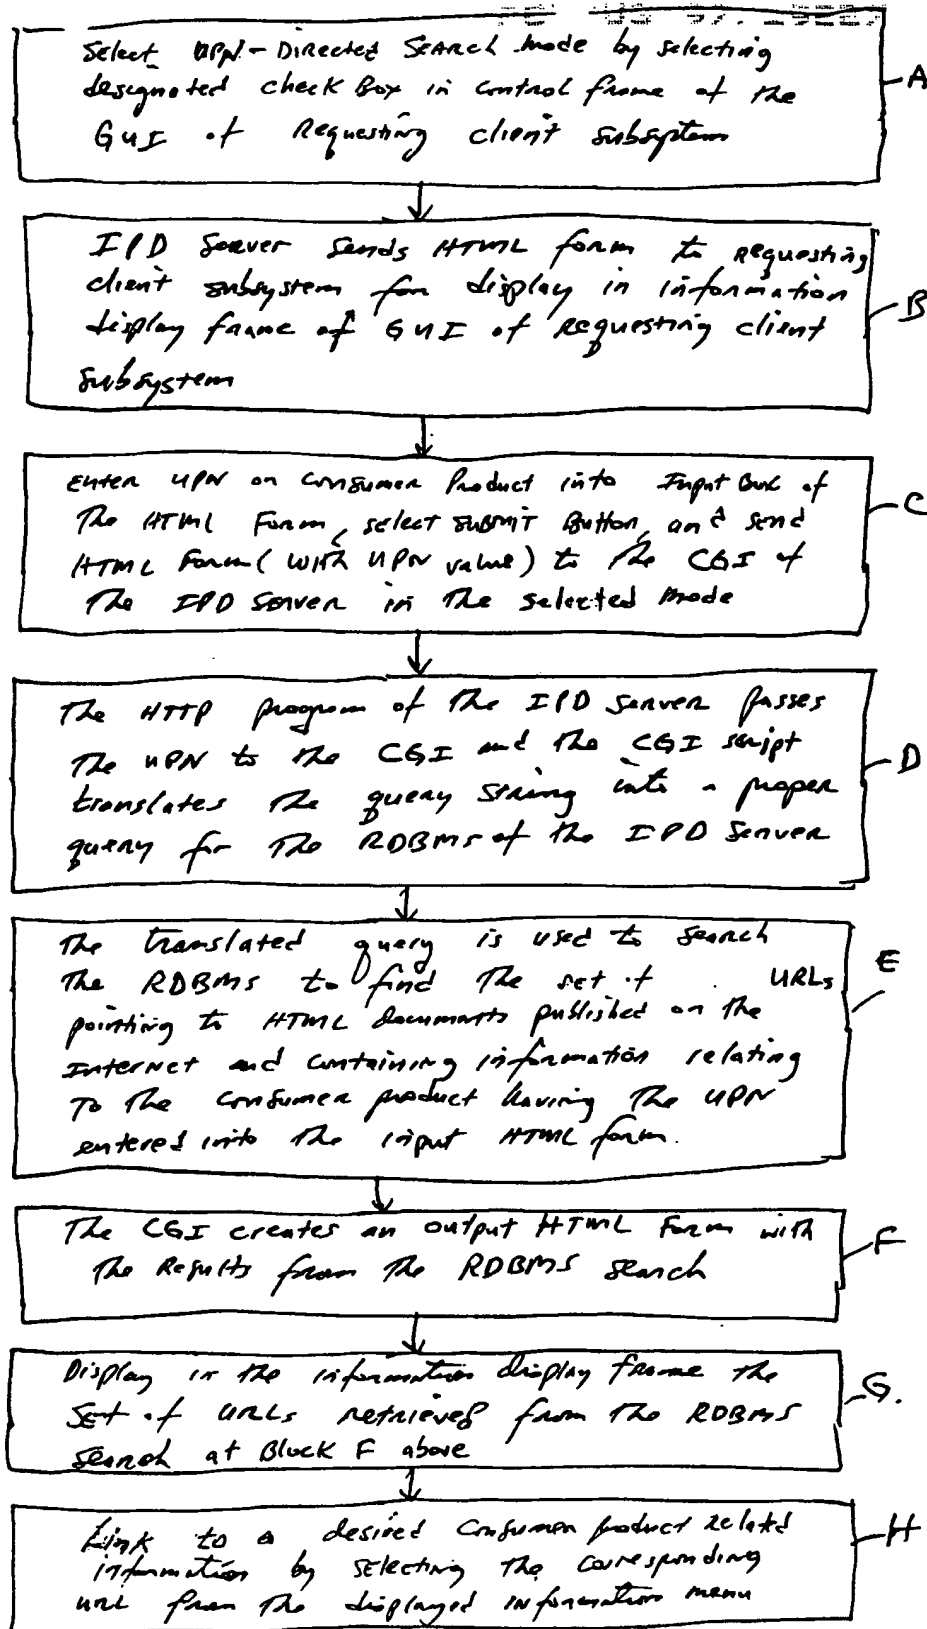 Select UPN-Directed Search mode by selecting
designated check Box in control frame of the
GUI of Requesting client subsystem
A
IPD Server sends HTML form to requesting
client subsystem for display in information
display frame of GUI of Requesting client
subsystem
B
Enter UPN on Consumer Product into Input Box of
The HTML Form, select submit Button, and send
HTML Form (with UPN value) to the CGI of
The IPD Server in the selected mode
C
The HTTP program of the IPD Server passes
The UPN to the CGI and the CGI script
translates the query string into a proper
query for the RDBMS of the IPD Server
D
The translated query is used to search
the RDBMS to find the set of URLs
pointing to HTML documents published on the
Internet and containing information relating
To the consumer product having the UPN
entered into the input HTML form.
E
The CGI creates an output HTML Form with
the Results from the RDBMS search
F
Display in the information display frame the
Set of URLs retrieved from the RDBMS
search at Block F above
G.
Link to a desired Consumer product related
information by selecting the corresponding
URL from the displayed information menu
H